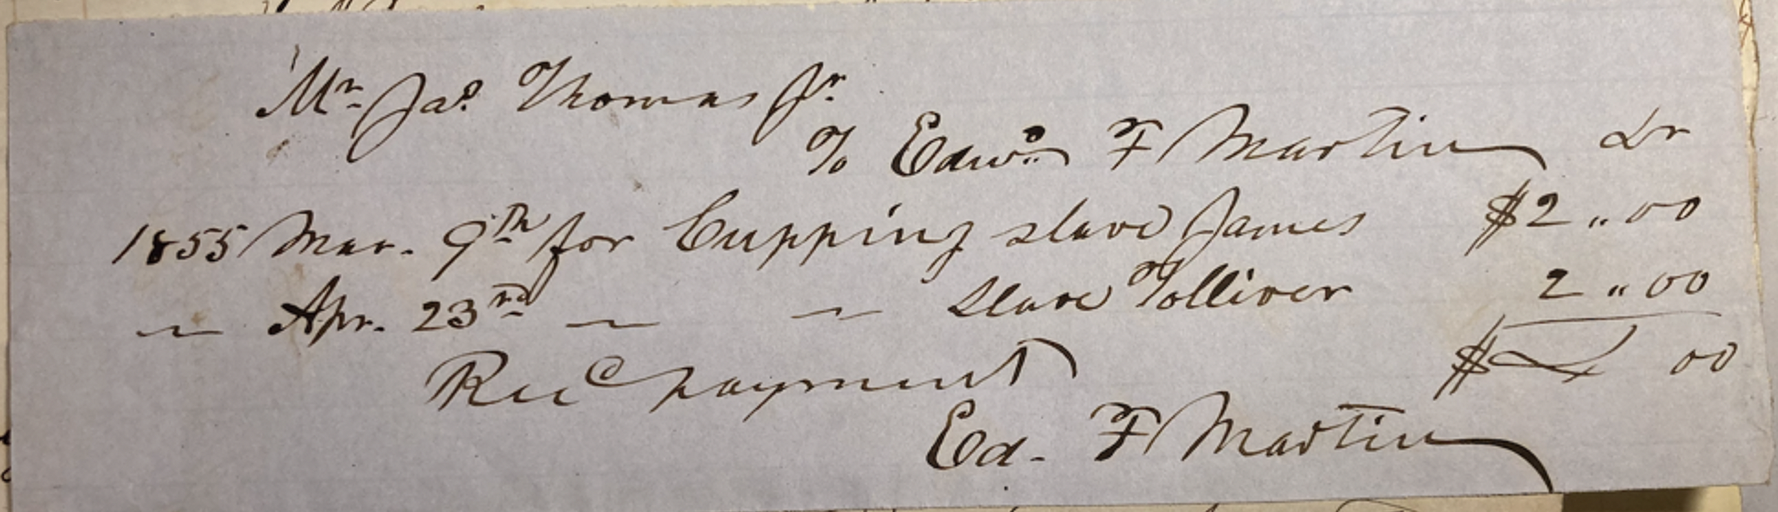 Mr. Jas. Thomas Jr.
To Edwd. F Martin Dr
1855 Mar. 9th for Cupping slave James $2 „ 00
〃 Apr. 23rd 〃 〃 Slave Tolliver 2 „ 00
Recd payment $4 00
Ed. F Martin